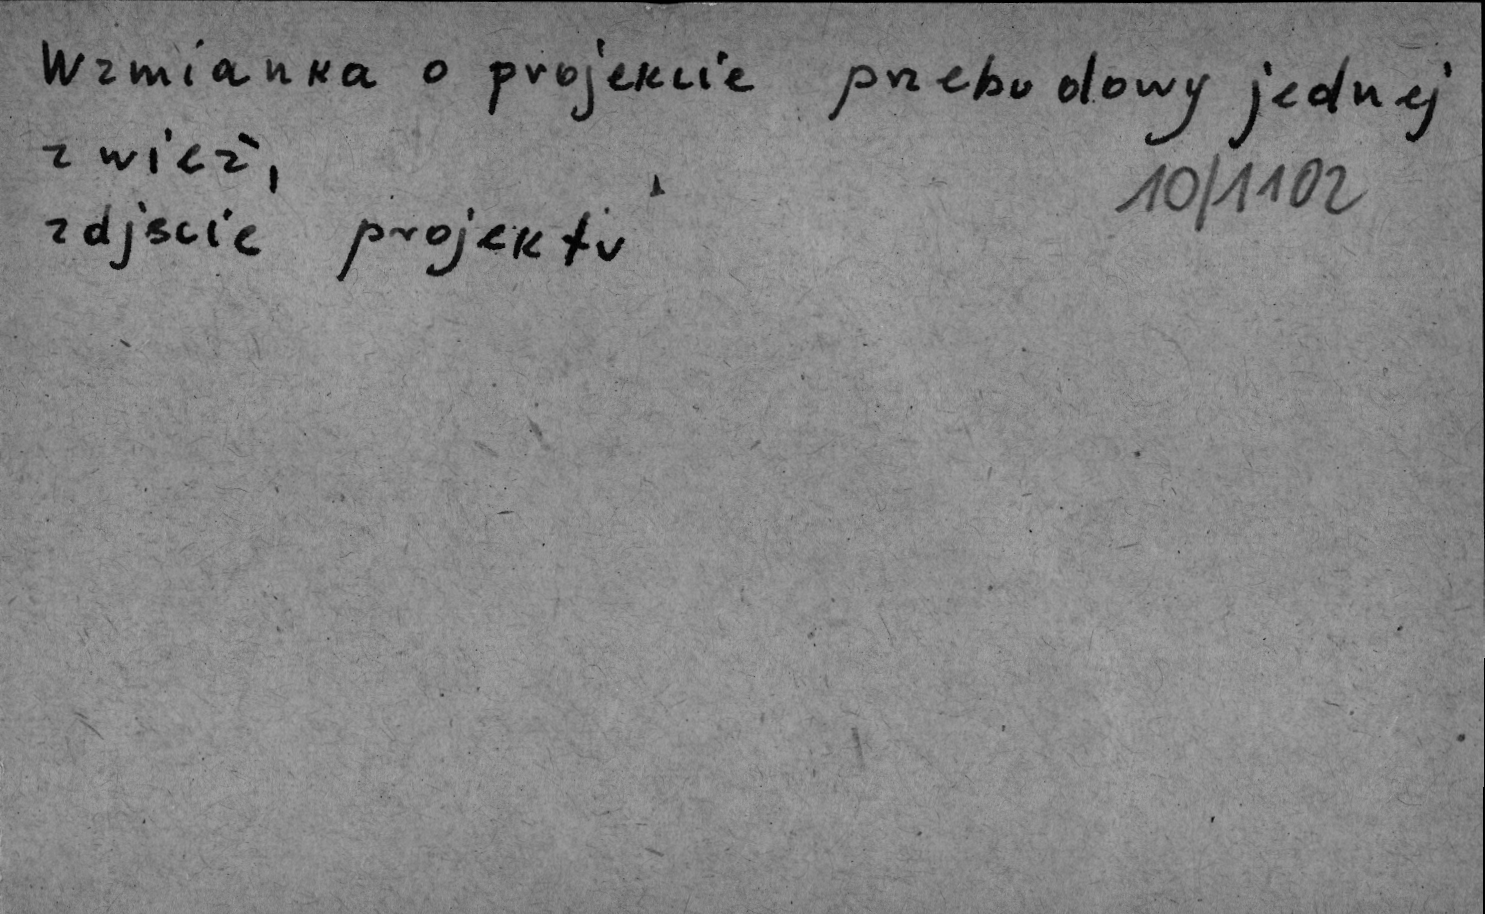 Wzmianka o projekcie przebudowy jednej
z wież,
10/1102
zdjscie projektu